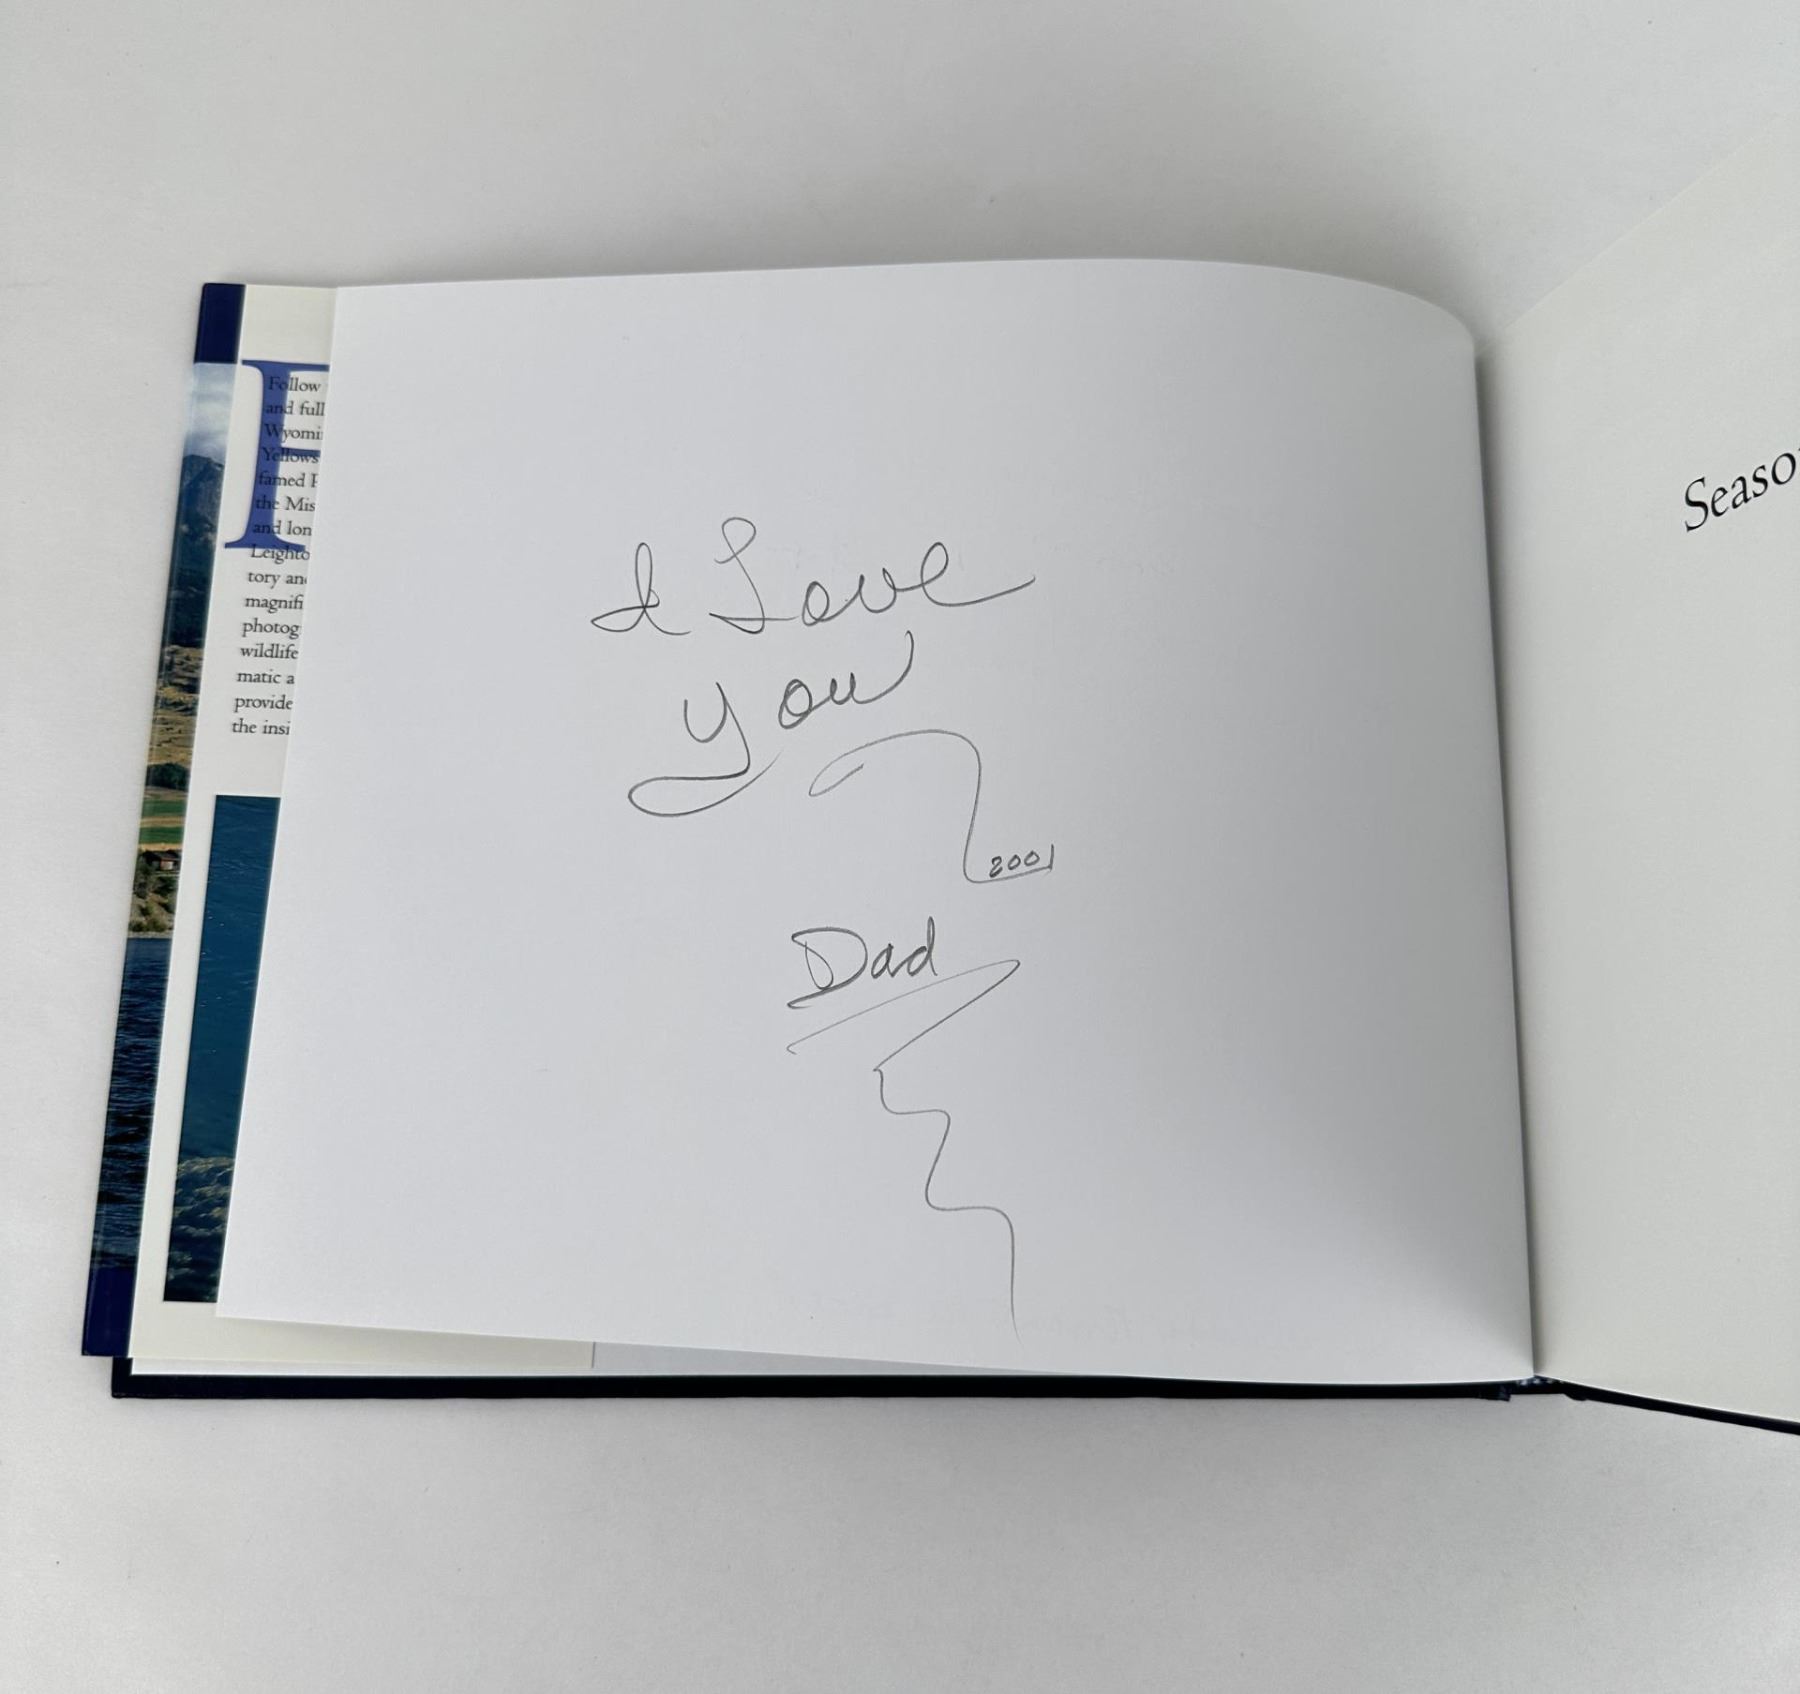 Follow
and full
Wyomi
Yellows
famed
the Mis
and lon
Leighto
tory an
magnifi
photog
wildlife
matic a
provide
the insi
I Love
you
2001
Dad
Seaso